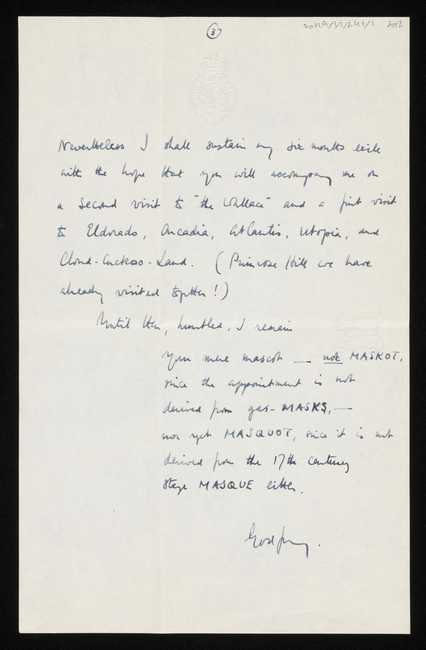 3
Nevertheless I shall sustain my six months exile
with the hope that you will accompany me on
a second visit to "the Wallace" and a first visit
to Eldorado, Arcadia, Atlantis, Utopia, and
Cloud-Cuckoo-Land. (Primrose Hill we have
already visited together!)
Until then, humbled, I remain
Your mere mascot — not MASKOT,
since the appointment is not
derived from gas-MASKS, —
nor yet MASQUOT, since it is not
derived from the 17th century
stage MASQUE either.
Godfrey.